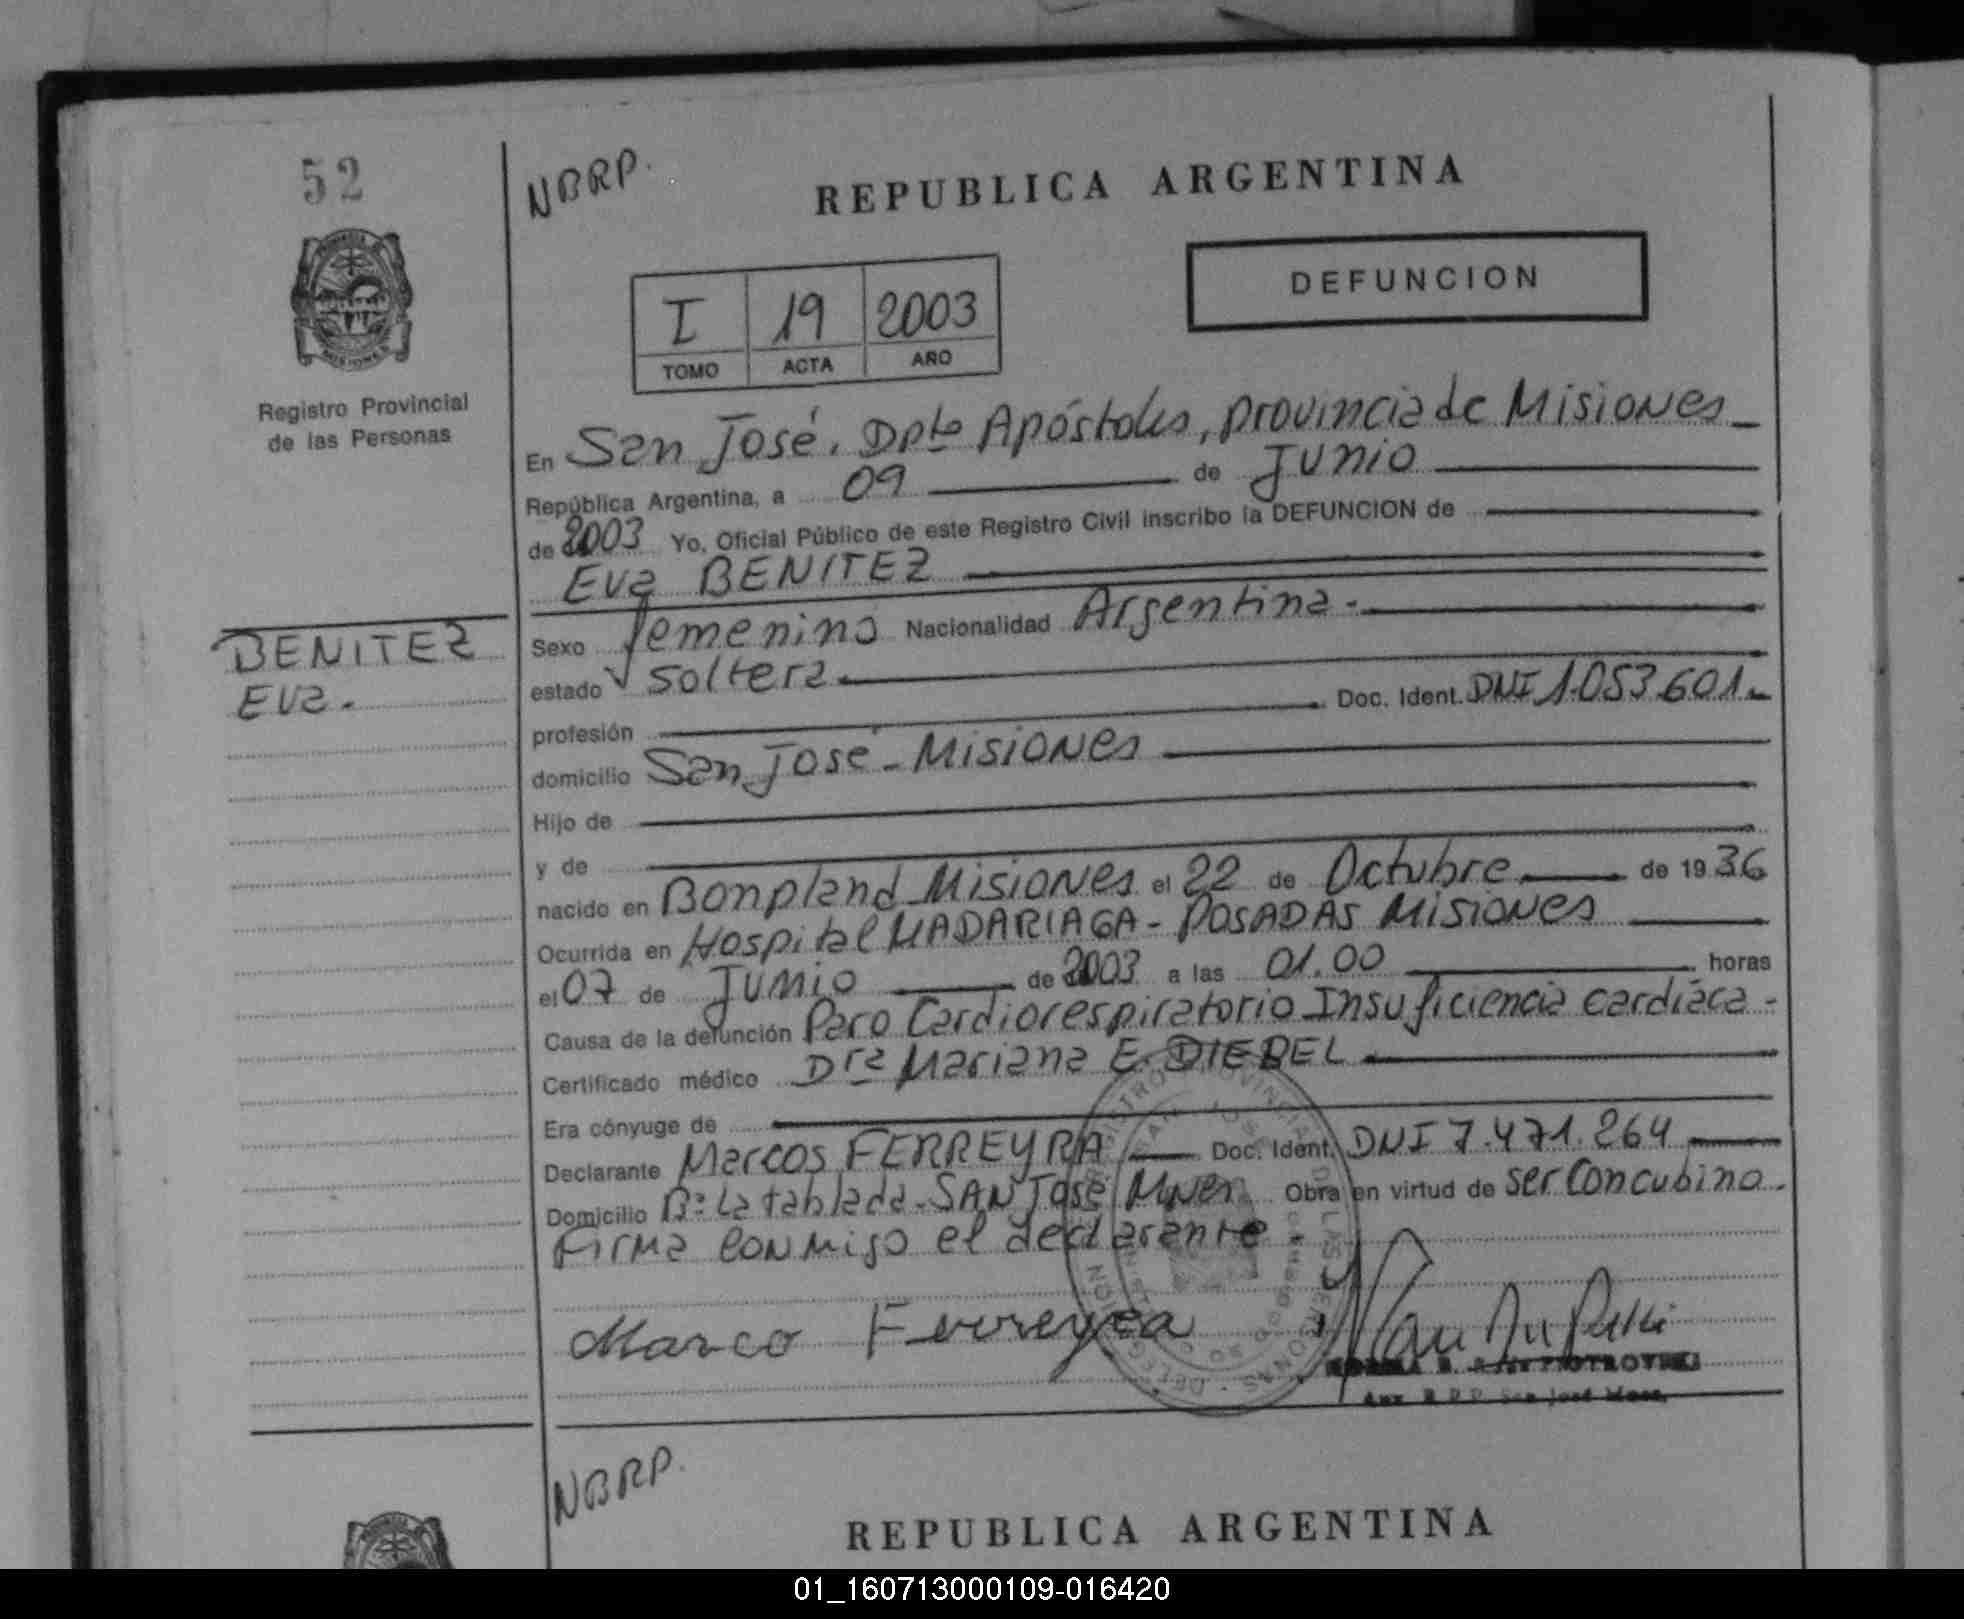 52
NBRP.
REPUBLICA ARGENTINA
DEFUNCION
I 19 2003
TOMO ACTA AÑO
Registro Provincial
de las Personas
BENITEZ
Eva.
En San José, Dpto Apóstoles, provincia de Misiones
República Argentina, a 09 de Junio
de 2003 Yo, Oficial Público de este Registro Civil inscribo la DEFUNCION de
Eva BENITEZ
Sexo femenino Nacionalidad Argentina.
estado soltera
profesión Doc. Ident. DNI 1.053.601.
domicilio San José - Misiones
Hijo de
y de
nacido en Bonpland Misiones el 22 de Octubre de 1936
Ocurrida en Hospital MADARIAGA - POSADAS Misiones
el 07 de Junio de 2003 a las 01.00 horas
Causa de la defunción Paro Cardiorespiratorio Insuficiencia cardíaca -
Certificado médico Dra Mariana E. DIEBEL
Era cónyuge de
Declarante Marcos FERREYRA Doc. Ident. DNI 7.471.264
Domicilio Bº La tablada - SAN José Mnes Obra en virtud de ser Concubino.
Firma conmigo el declarante
Marco Ferreyra
PIOTROVSKI
Aux. R.P.P. San José Mnes.
NBRP.
REPUBLICA ARGENTINA
01_160713000109-016420